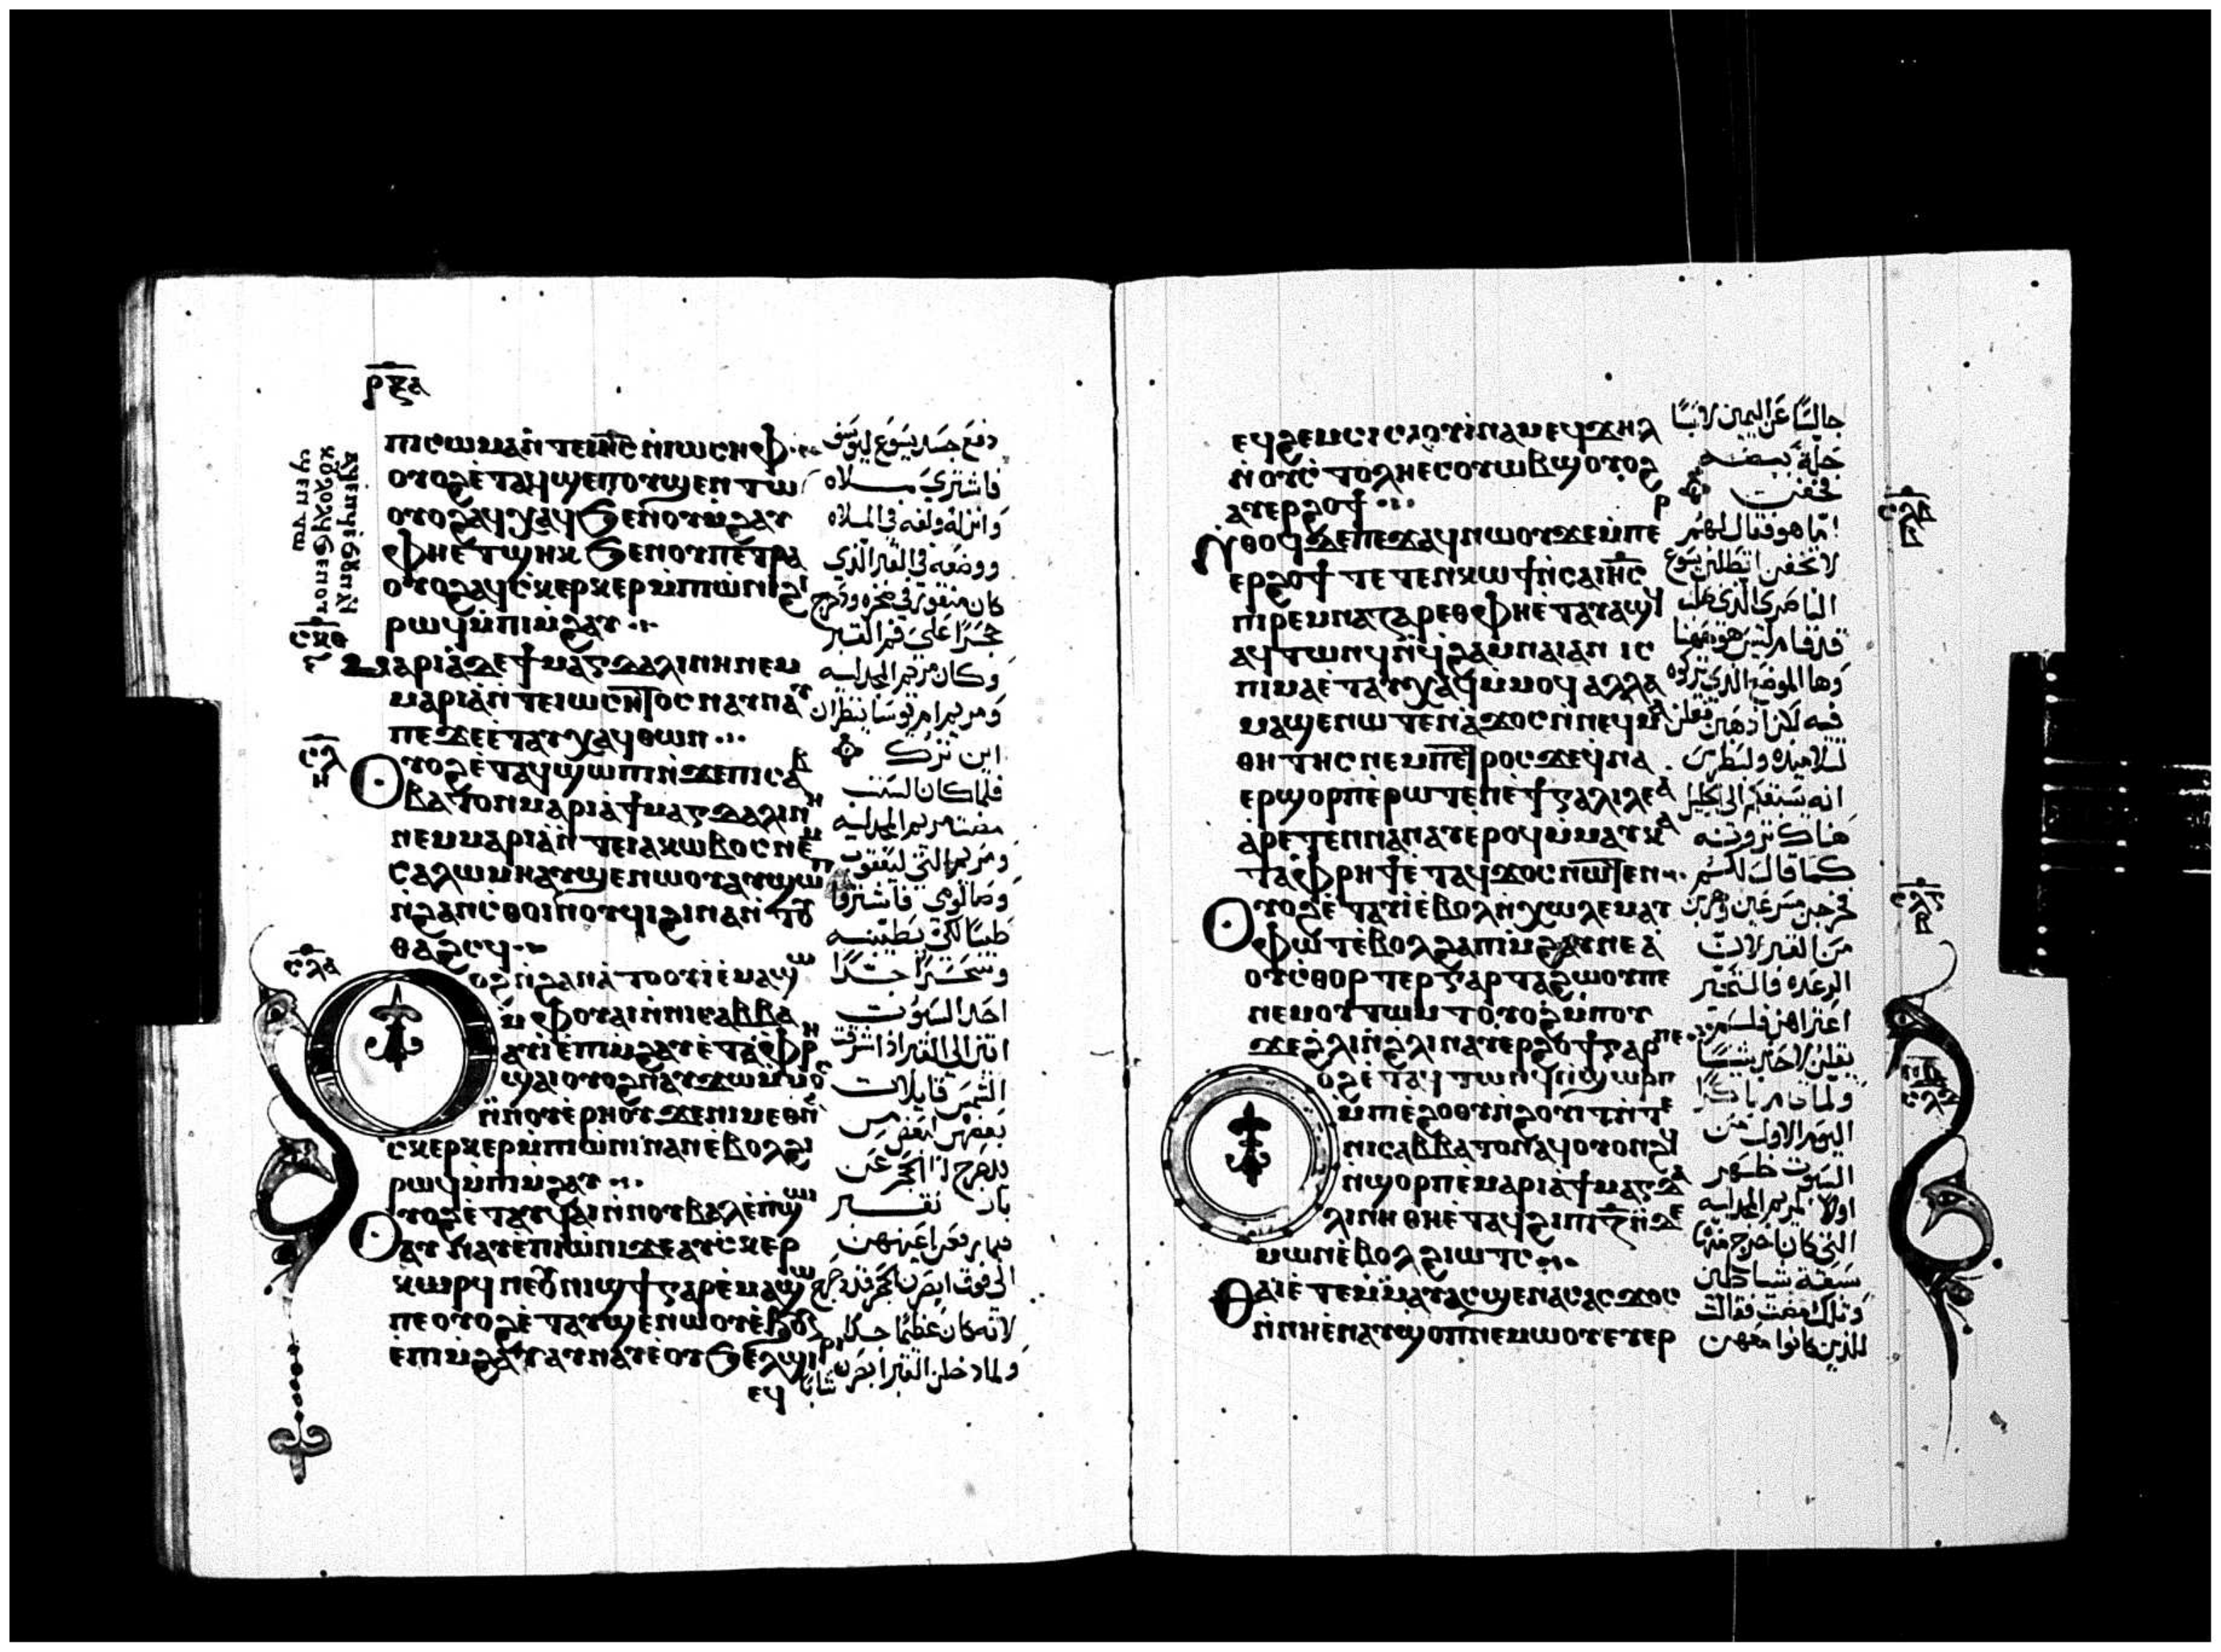 ⲣⲝⲁ
ⲡⲓⲥⲱⲙⲁⲛ̀ⲧⲉⲓⲏ̅ⲥ̅ⲛ̀ⲓⲱⲥⲏⲫ
ⲟⲩⲟϩⲉ̀ⲧⲁϥϣⲉⲡⲟⲩϣⲉⲛⲧⲱ
ⲟⲩⲟϩⲁϥⲭⲁϥϧⲉⲛⲟⲩⲙϩⲁⲩ
ⲫⲏⲉ̀ⲧϣⲏⲕ ϧⲉⲛⲟⲩⲡⲉⲧⲣⲁ
ⲟⲩⲟϩⲁϥⲥⲕⲉⲣⲕⲉⲣⲙ̀ⲡⲱ̀ⲛⲓϩⲓ
ⲣⲱϥⲙ̀ⲡⲓⲙ̀ϩⲁⲩ
ⲙⲁⲣⲓⲁ̀ⲇⲉϯⲙⲁⲅⲇⲁⲗⲓⲛⲏⲛⲉⲙ
ⲙⲁⲣⲓⲁ̀ⲛ̀ⲧⲉⲓⲱⲥⲏⲧⲟⲥⲛⲁⲩⲛⲁⲩ
ⲡⲉϫⲉⲉ̀ⲧⲁⲩⲭⲁϥⲑⲱⲛ
ⲥⲗ
ⲟⲩⲟϩⲉ̀ⲧⲁϥϣⲱⲡⲓⲛ̀ϫⲉⲡⲓⲥⲁⲃ
ⲃⲁⲧⲟⲛⲙⲁⲣⲓⲁ̀ϯⲙⲁⲅⲇⲁⲗⲓⲛⲏ
ⲛⲉⲙⲙⲁⲣⲓⲁ̀ⲛ̀ⲧⲉⲓⲁⲕⲱⲃⲟⲥⲛⲉⲙ
ⲥⲁⲗⲱⲙⲏⲁⲩϣⲉⲛⲱⲟⲩⲁⲩϣⲱⲡ
ⲛ̀ϩⲁⲛⲥ̀ⲑⲟⲓⲛⲟⲩϥⲓϩⲓⲛⲁⲛ̀ⲧⲟⲩ
ⲑⲁϩⲥϥ
ⲥⲗⲁ
ⲟϩⲛ̀ϩⲁⲛⲁ̀ⲧⲟⲟⲩⲓⲉ̀ⲙⲁϣⲱ
ⲙ̀ⲫⲟⲩⲁⲓⲛ̀ⲛⲓⲥⲁⲃⲃⲁ
ⲁⲩⲓ̀ⲉ̀ⲡⲓⲙ̀ϩⲁⲩⲉ̀ⲧⲁⲫⲣⲏ
ϣⲁⲓⲟⲩⲟϩⲛⲁⲩϫⲱⲙ̀ⲙⲟⲥ
ⲛ̀ⲛⲟⲩⲉ̀ⲣⲏⲟⲩϫⲉⲛⲓⲙⲉⲑⲛⲁ
ⲥⲕⲉⲣⲕⲉⲣⲙ̀ⲡⲱ̀ⲛⲓⲛⲁⲛⲉ̀ⲃⲟⲗϩⲓ
ⲣⲱϥⲙ̀ⲡⲓⲙ̀ϩⲁⲩ
ⲟⲩⲟϩⲉ̀ⲧⲁⲩϥⲁⲓⲛ̀ⲛⲟⲩⲃⲁⲗⲉ̀ⲡ̀ϣⲱⲓ
ⲁⲩⲛⲁⲩⲉ̀ⲡⲓⲱ̀ⲛⲓϫⲉⲁⲩⲥ̀ⲕⲉⲣ
ⲕⲱⲣϥⲛⲉⲟⲩⲛⲓϣϯⲅⲁⲣⲉ̀ⲙⲁϣⲱ
ⲡⲉⲟⲩⲟϩⲉ̀ⲧⲁⲩϣⲉⲛⲱⲟⲩⲉ̀ϧⲟⲩⲛ
ⲉ̀ⲡⲓⲙ̀ϩⲁⲩⲁⲩⲛⲁⲩⲉ̀ⲟⲩϧⲉⲗϣⲓⲣⲓ
ⲉϥ
دفع جسد يسوع ليوسف
فاشترى ملاه
وانزله ولفه في الملاه
ووضعه في القبر الذي
كان منقور في صخره ودحرج
حجرا على فم القبر
وكان مريم المجدليه
ومريم ام يوسا ينظران
اين ترك
فلما كان السبت
مضت مريم المجدليه
ومريم التي ليعقوب
وصالومي فاشتروا
طيبا لكي يطيبنه
وبسحر جدا
احد السبوت
اتين الى القبر اذ اشرقت
الشمس قايلات
بعضهن لبعض من
يدحرج لنا الحجر عن
باب القبر
فلما رفعن اعينهن
الى فوق ابصرن الحجر قد دحرج
لانه كان عظيما جدا
ولما دخلن القبر ابصرن شابا
ⲉϥϩⲉⲙⲥⲓⲥⲁⲟⲩⲓ̀ⲛⲁⲙⲉϥϫⲏⲗ
ⲛ̀ⲟⲩⲥ̀ⲧⲟⲗⲏⲉⲥⲟⲩⲱⲃϣⲟⲩⲟϩ
ⲁⲩⲉⲣϩⲟϯ
ⲛ̀ⲑⲟϥⲇⲉⲡⲉϫⲁϥⲛⲱⲟⲩϫⲉⲙ̀ⲡⲉ
ⲉⲣϩⲟϯ ⲧⲉⲧⲉⲛⲕⲱϯⲛ̀ⲥⲁⲓⲏ̅ⲥ̅
ⲡⲓⲣⲉⲙⲛⲁⲍⲁⲣⲉⲑⲫⲏⲉ̀ⲧⲁⲩⲁϣϥ
ⲁϥⲧⲱⲛϥⲛ̀ϥ̀ⲭⲁⲙⲛⲁⲓⲁⲛ ⲓⲥ
ⲡⲓⲙⲁⲉ̀ⲧⲁⲩⲭⲁϥⲙ̀ⲙⲟϥ ⲁⲗⲗⲁ
ⲙⲁϣⲉⲛⲱⲧⲉⲛⲁ̀ϫⲟⲥⲛ̀ⲛⲉϥⲙⲁ
ⲑⲏⲧⲏⲥⲛⲉⲙⲡⲉⲧⲣⲟⲥϫⲉϥ̀ⲛⲁ
ⲉⲣϣⲟⲣⲡⲉ̀ⲣⲱⲧⲉⲛⲉ̀ϯⲅⲁⲗⲓⲗⲉⲁ
ⲁ̀ⲣⲉⲧⲉⲛⲛⲁⲛⲁⲩⲉ̀ⲣⲟϥⲙ̀ⲙⲁⲩⲕⲁ
ⲧⲁⲫⲣⲏϯⲉ̀ⲧⲁϥϫⲟⲥⲛⲱⲧⲉⲛ
ⲟⲩⲟϩⲉ̀ⲧⲁⲩⲓ̀ⲉ̀ⲃⲟⲗⲛ̀ⲭⲱⲗⲉⲙⲁⲩ
ⲫⲱⲧⲉ̀ⲃⲟⲗϩⲁⲡⲓⲙ̀ϩⲁⲩⲛⲉⲁ̀
ⲟⲩⲥ̀ⲑⲟⲣⲧⲉⲣⲅⲁⲣⲧⲁϩⲱⲟⲩⲡⲉ
ⲛⲉⲙⲟⲩⲧⲱⲙⲧⲟⲩⲟϩⲙ̀ⲡⲟⲩ
ϫⲉϩⲗⲓⲛ̀ϩⲗⲓⲛⲁⲩⲉⲣϩⲟϯⲅⲁⲣⲡⲉ
ⲟϩⲉ̀ⲧⲁϥⲧⲱⲛϥⲛ̀ϣⲱⲣⲡ
ⲙ̀ⲡⲓⲉ̀ϩⲟⲟⲩⲛ̀ϩⲟⲩⲓⲧⲛ̀ⲧⲉ
ⲛⲓⲥⲁⲃⲃⲁⲧⲟⲛⲁϥⲟⲩⲟⲛϩϥ
ⲛ̀ϣⲟⲣⲡⲉ̀ⲙⲁⲣⲓⲁ̀ϯⲙⲁⲅⲇⲁ
ⲗⲓⲛⲏ ⲑⲏⲉ̀ⲧⲁϥϩⲓⲡⲓⲍ̅ⲛ̀ⲇⲉ
ⲙⲱⲛⲉ̀ⲃⲟⲗϩⲓⲱⲧⲥ
ⲑⲁⲓⲉ̀ⲧⲉⲙ̀ⲙⲁⲩⲁⲥϣⲉⲛⲁⲥⲁⲥϫⲟⲥ
ⲛ̀ⲛⲏⲉ̀ⲛⲁⲩϣⲟⲡⲛⲉⲙⲱⲟⲩⲉⲩⲉⲣ
جالسا عن اليمين لابسا
حلة بيضه
فخفن
اما هو فقال لهن
لا تخفن اتطلبن يسوع
الناصري الذي صلب
قد قام ليس هو ههنا
وها الموضع الذي تركوه
فيه لكن اذهبن فقلن
لتلاميذه ولبطرس
انه يسبقكم الى الجليل
هناك ترونه
كما قال لكم
فخرجن مسرعين وهربن
من القبر لان
الرعده والتحير
اعتراهن فلم
يقلن لاحد شيا
ولما قام باكرا
اليوم الاول من
السبوت ظهر
اولا لمريم المجدليه
التي كان اخرج منها
سبعة شياطين
وتلك مضت فقالت
للذين كانوا معهن